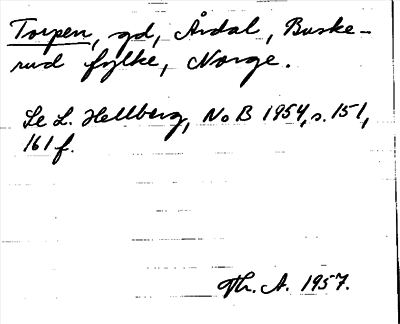 Torpen, gd, Årdal, Buske-
rud fylke, Norge.
Se L. Hellberg, NoB 1954, s. 151,
161 f.
Th. A. 1957.